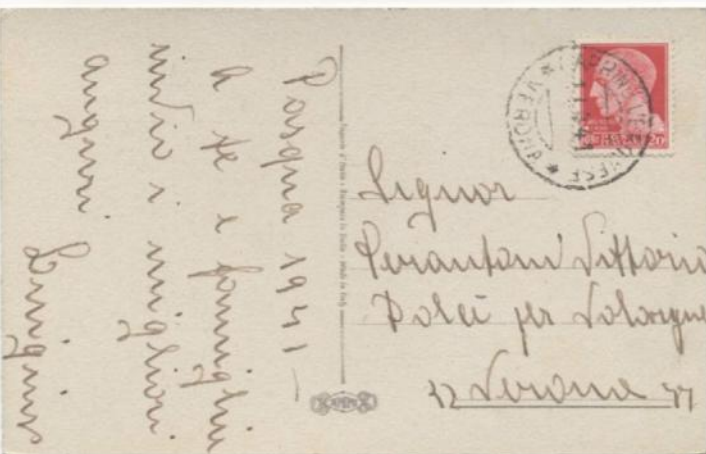 Pasqua 1941 –
A te e famiglia
invio i migliori
auguri
Signor
Perantoni Vittorio
Dolcè per Volargne
Verona
VERONA
CENT. 20